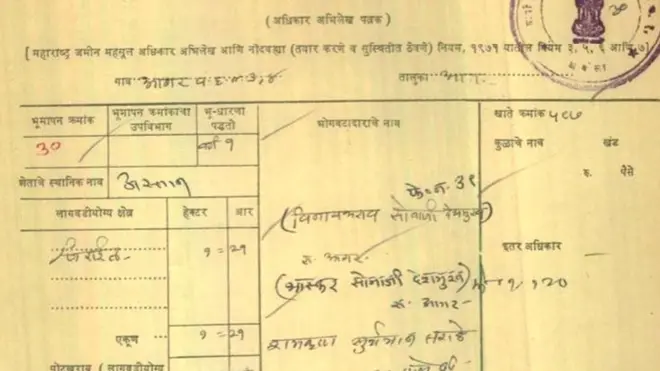 (अधिकार अभिलेख पत्रक)
[ महाराष्ट्र जमीन महसूल अधिकार अभिलेख आणि नोंदवह्या (तयार करणे व सुस्थितीत ठेवणे) नियम, १९७१ यातील नियम ३, ५, ६ आणि ७]
गाव आगर
तालुका
भूमापन क्रमांक
भूमापन क्रमांकाचा उपविभाग
भू-धारणा पद्धती
भोगवटादाराचे नाव
खाते क्रमांक ५८७
३०
वर्ग १
कुळाचे नाव
खंड
रु. पैसे
शेताचे स्थानिक नाव
फे.नं. ३९
लागवडीयोग्य क्षेत्र
हेक्टर
आर
(विनायकराव सोनाजी देशमुख)
जिराईत
१ = २१
रु. आगर
इतर अधिकार
(भास्कर सोनाजी देशमुख)
रु. आगर
एकूण
१ = २१
रामकृष्ण सुर्यभान
पोटखराब (लागवडीयोग्य